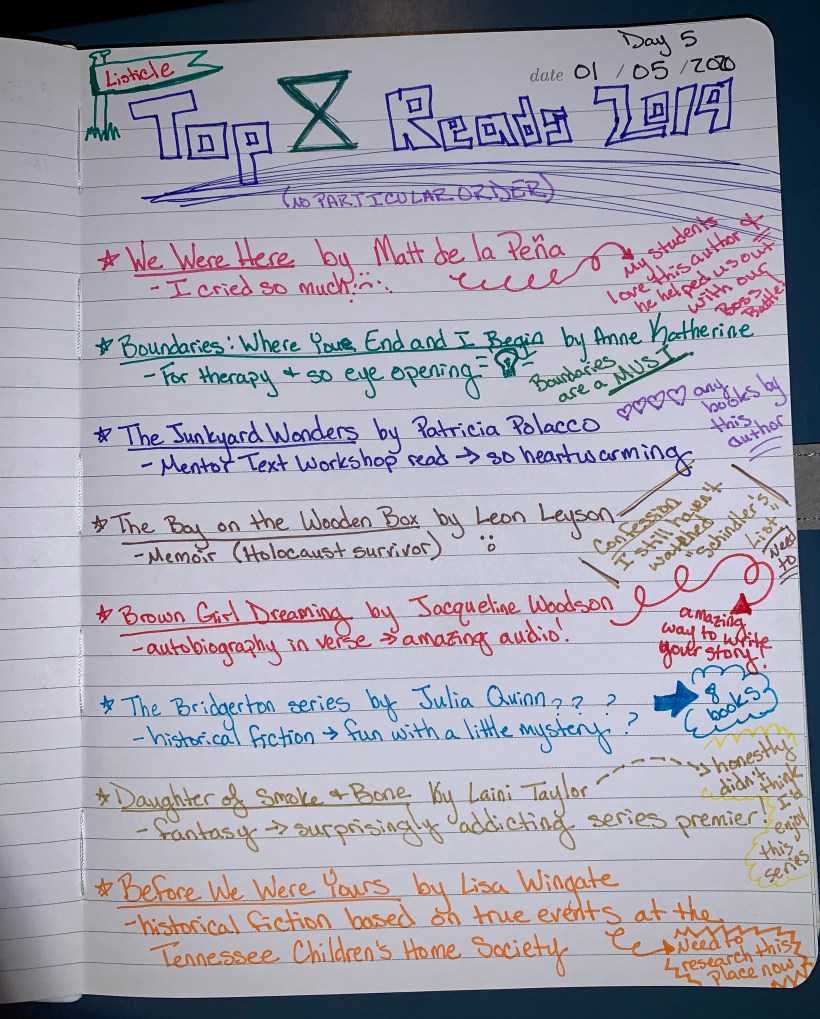 Day 5
Listicle
date 01 / 05 / 2020
Top 8 Reads 2019
(NO PARTICULAR ORDER)
We Were Here by Matt de la Peña
- I cried so much!
My students
love this author &
he helped us out
with our
Boss
Battle!
Boundaries: Where You End and I Begin by Anne Katherine
- For therapy + so eye opening
Boundaries
are a MUST
The Junkyard Wonders by Patricia Polacco
- Mentor Text Workshop read → so heartwarming
any
books by
this
author
The Boy on the Wooden Box by Leon Leyson
- Memoir (Holocaust survivor)
Confession
I still haven't
watched
"Schindler's
List"
Need
to
Brown Girl Dreaming by Jacqueline Woodson
- autobiography in verse → amazing audio!
amazing
way to write
your story!
The Bridgerton series by Julia Quinn ? ? ?
- historical fiction → fun with a little mystery ?
8
books
Daughter of Smoke & Bone by Laini Taylor
- fantasy → surprisingly addicting series premier!
honestly
didn't
think
I'd
enjoy
this
series
Before We Were Yours by Lisa Wingate
- historical fiction based on true events at the
Tennessee Children's Home Society
Need to
research this
place now